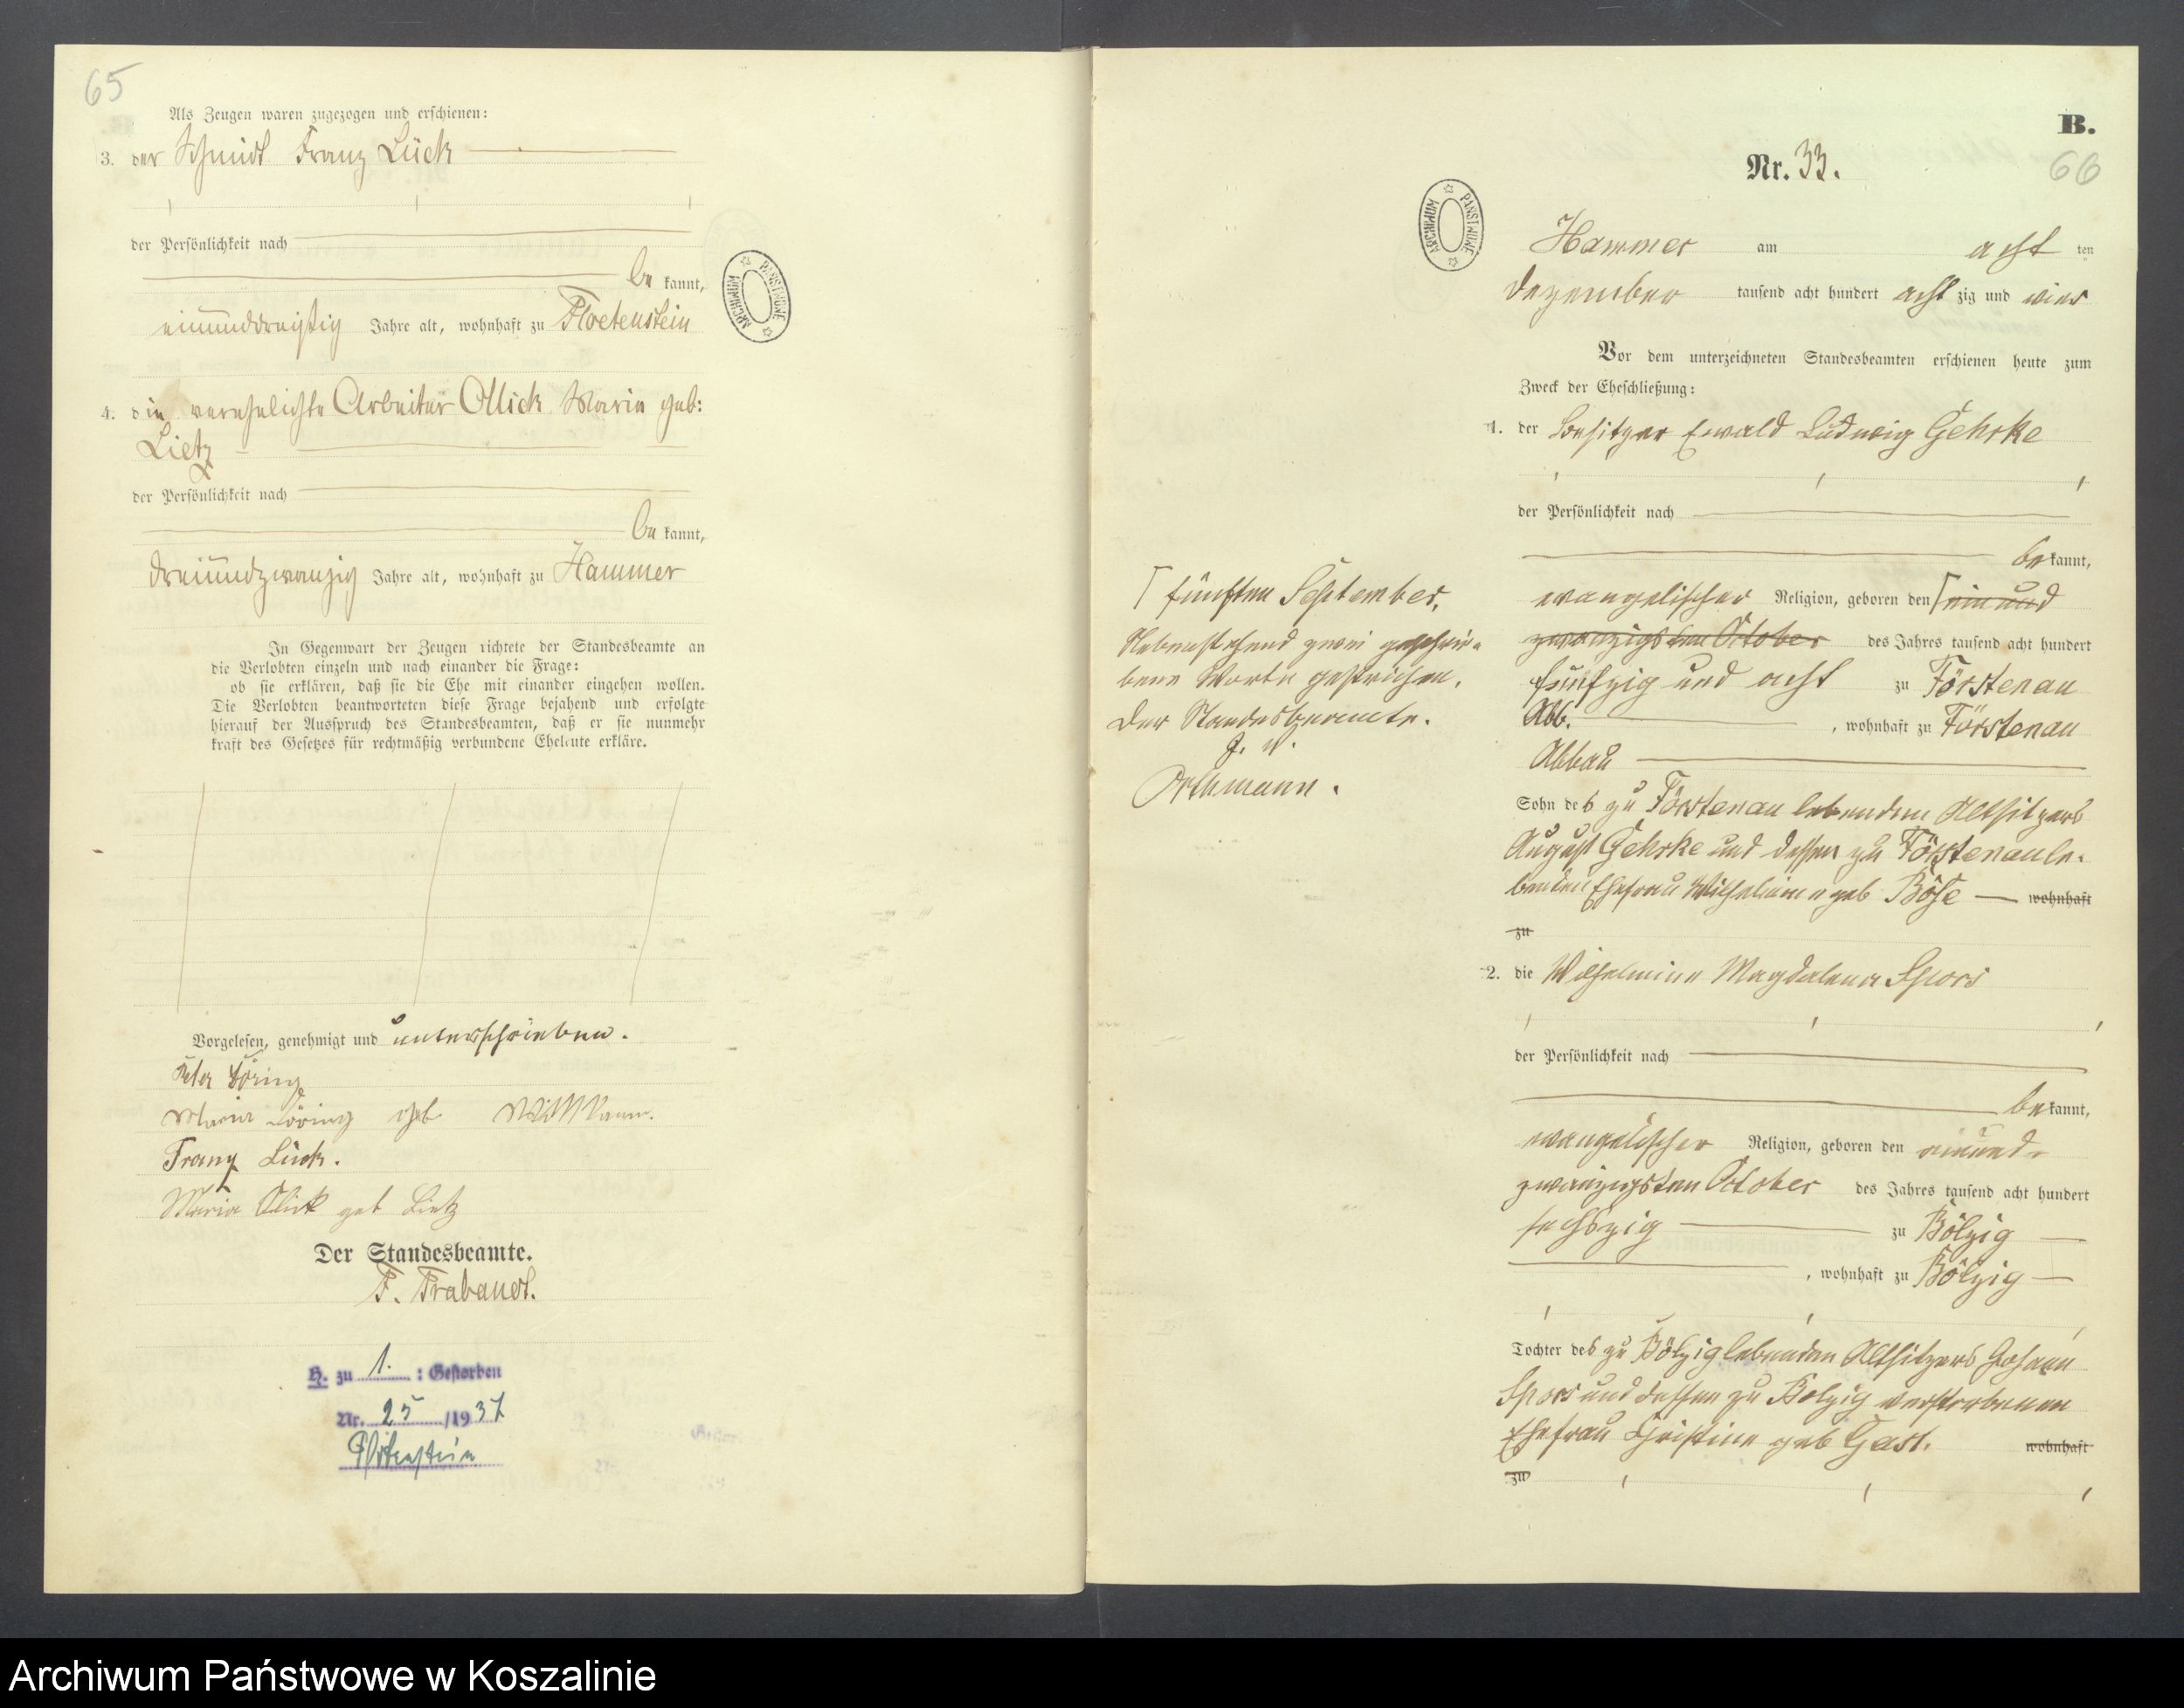 65
Als Zeugen waren zugezogen und erschienen:
3. der Schmidt Franz Lück
der Persönlichkeit nach
be kannt,
einunddreißig Jahre alt, wohnhaft zu Floetenstein
4. die verehelichte Arbeiter Ollick Maria geb:
Lietz
der Persönlichkeit nach
be kannt,
dreiundzwanzig Jahre alt, wohnhaft zu Hammer
In Gegenwart der Zeugen richtete der Standesbeamte an
die Verlobten einzeln und nach einander die Frage:
ob sie erklären, daß sie die Ehe mit einander eingehen wollen.
Die Verlobten beantworteten diese Frage bejahend und erfolgte
hierauf der Ausspruch des Standesbeamten, daß er sie nunmehr
kraft des Gesetzes für rechtmäßig verbundene Eheleute erkläre.
Vorgelesen, genehmigt und unterschrieben.
Maria geb
Franz Lück.
Maria Ollick geb Lietz
Der Standesbeamte.
F. Trabandt.
H. zu 1. : Gestorben
Nr. 25 /1937
Flötenstein
ARCHIWUM PAŃSTWOWE
B.
66
Nr. 33.
ARCHIWUM PAŃSTWOWE
Hammer am acht ten
Dezember tausend acht hundert acht zig und vier
Vor dem unterzeichneten Standesbeamten erschienen heute zum
Zweck der Eheschließung:
1. der Besitzer Ewald Ludwig Gehrke
der Persönlichkeit nach
be kannt,
evangelischer Religion, geboren den ein und
zwanzigsten October des Jahres tausend acht hundert
fünfzig und acht zu Förstenau
Abb. , wohnhaft zu Förstenau
Abbau
Sohn des zu Förstenau lebenden Altsitzers
August Gehrke und dessen zu Förstenau le-
benden Ehefrau Wilhelmine geb Böse wohnhaft
zu
2. die Wilhelmine Magdalena Spors
der Persönlichkeit nach
be kannt,
evangelischer Religion, geboren den einund-
zwanzigsten October des Jahres tausend acht hundert
sechszig zu Bölzig
, wohnhaft zu Bölzig
Tochter des zu Bölzig lebenden Altsitzers Johann
Spors und dessen zu Bölzig verstorbenen
Ehefrau Christine geb Gast. wohnhaft
zu
fünften September.
Nebenstehend zwei geschrie-
bene Worte gestrichen.
Der Standesbeamte.
J. V.
Orthmann.
Archiwum Państwowe w Koszalinie